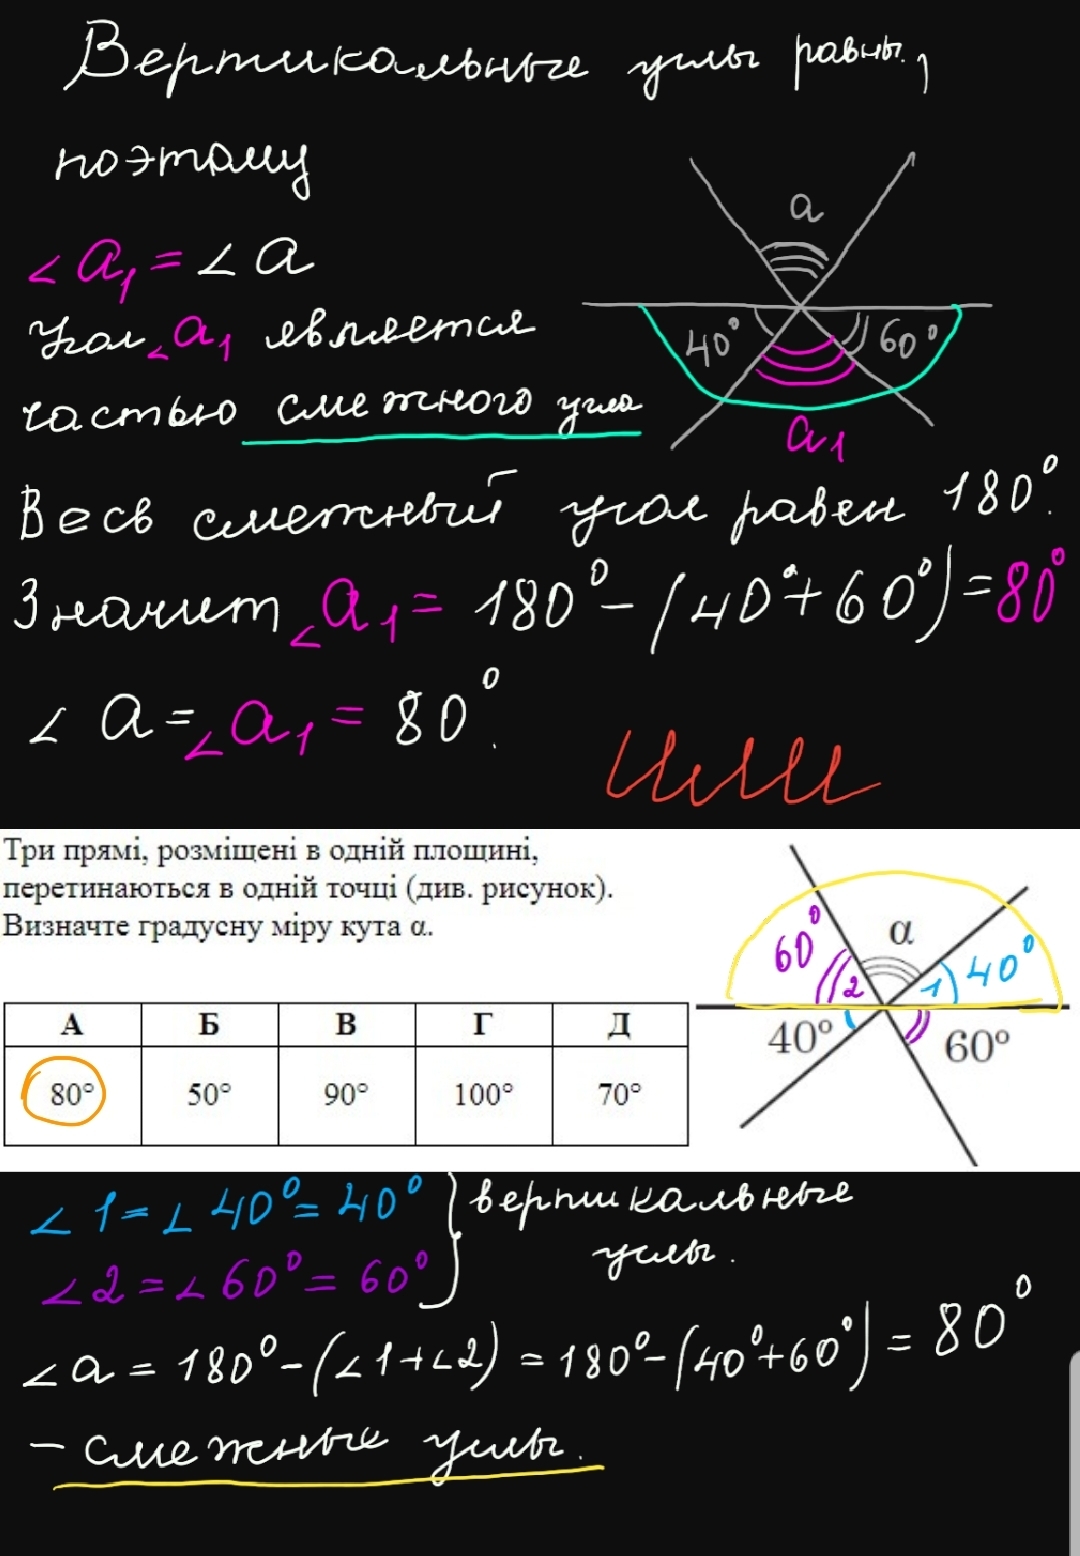 Вертикальные углы равны,
поэтому
a
∠a₁ = ∠a
Угол ∠a₁ является
40° 60°
частью смежного угла
a₁
Весь смежный угол равен 180°.
Значит ∠a₁ = 180° - (40° + 60°) = 80°
∠a = ∠a₁ = 80°.
Или
Три прямі, розміщені в одній площині,
перетинаються в одній точці (див. рисунок).
Визначте градусну міру кута α.
60° α 40°
2 1
40° 60°
А Б В Г Д
80° 50° 90° 100° 70°
∠1 = ∠40° = 40° } вертикальные
∠2 = ∠60° = 60° углы.
∠a = 180° - (∠1 + ∠2) = 180° - (40° + 60°) = 80°
- смежные углы.